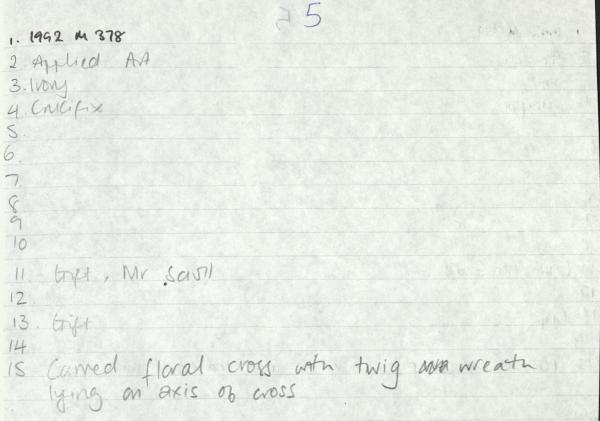 5
1. 1992 M 378
2 Applied AA
3. Ivory
4 Crucifix
5.
6.
7.
8
9
10
11 Gift, Mr
12
13. Gift
14
15 Carved floral cross with twig wreath
lying on axis of cross